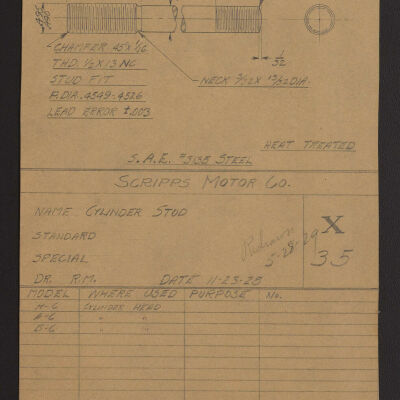 CHAMFER 45°X 1/16
THD. 1/2 X 13 NC
STUD FIT
P. DIA. .4549-.4526
LEAD ERROR ±.003
1/32
NECK 3/32 X 13/32 DIA.
HEAT TREATED
S.A.E. #3135 STEEL
SCRIPPS MOTOR CO.
NAME CYLINDER STUD
STANDARD
SPECIAL
Redrawn
5-28-29
X
35
DR. R.M. DATE 11-23-28
MODEL WHERE USED PURPOSE No.
H-6 CYLINDER HEAD
E-6 " "
G-6 " "